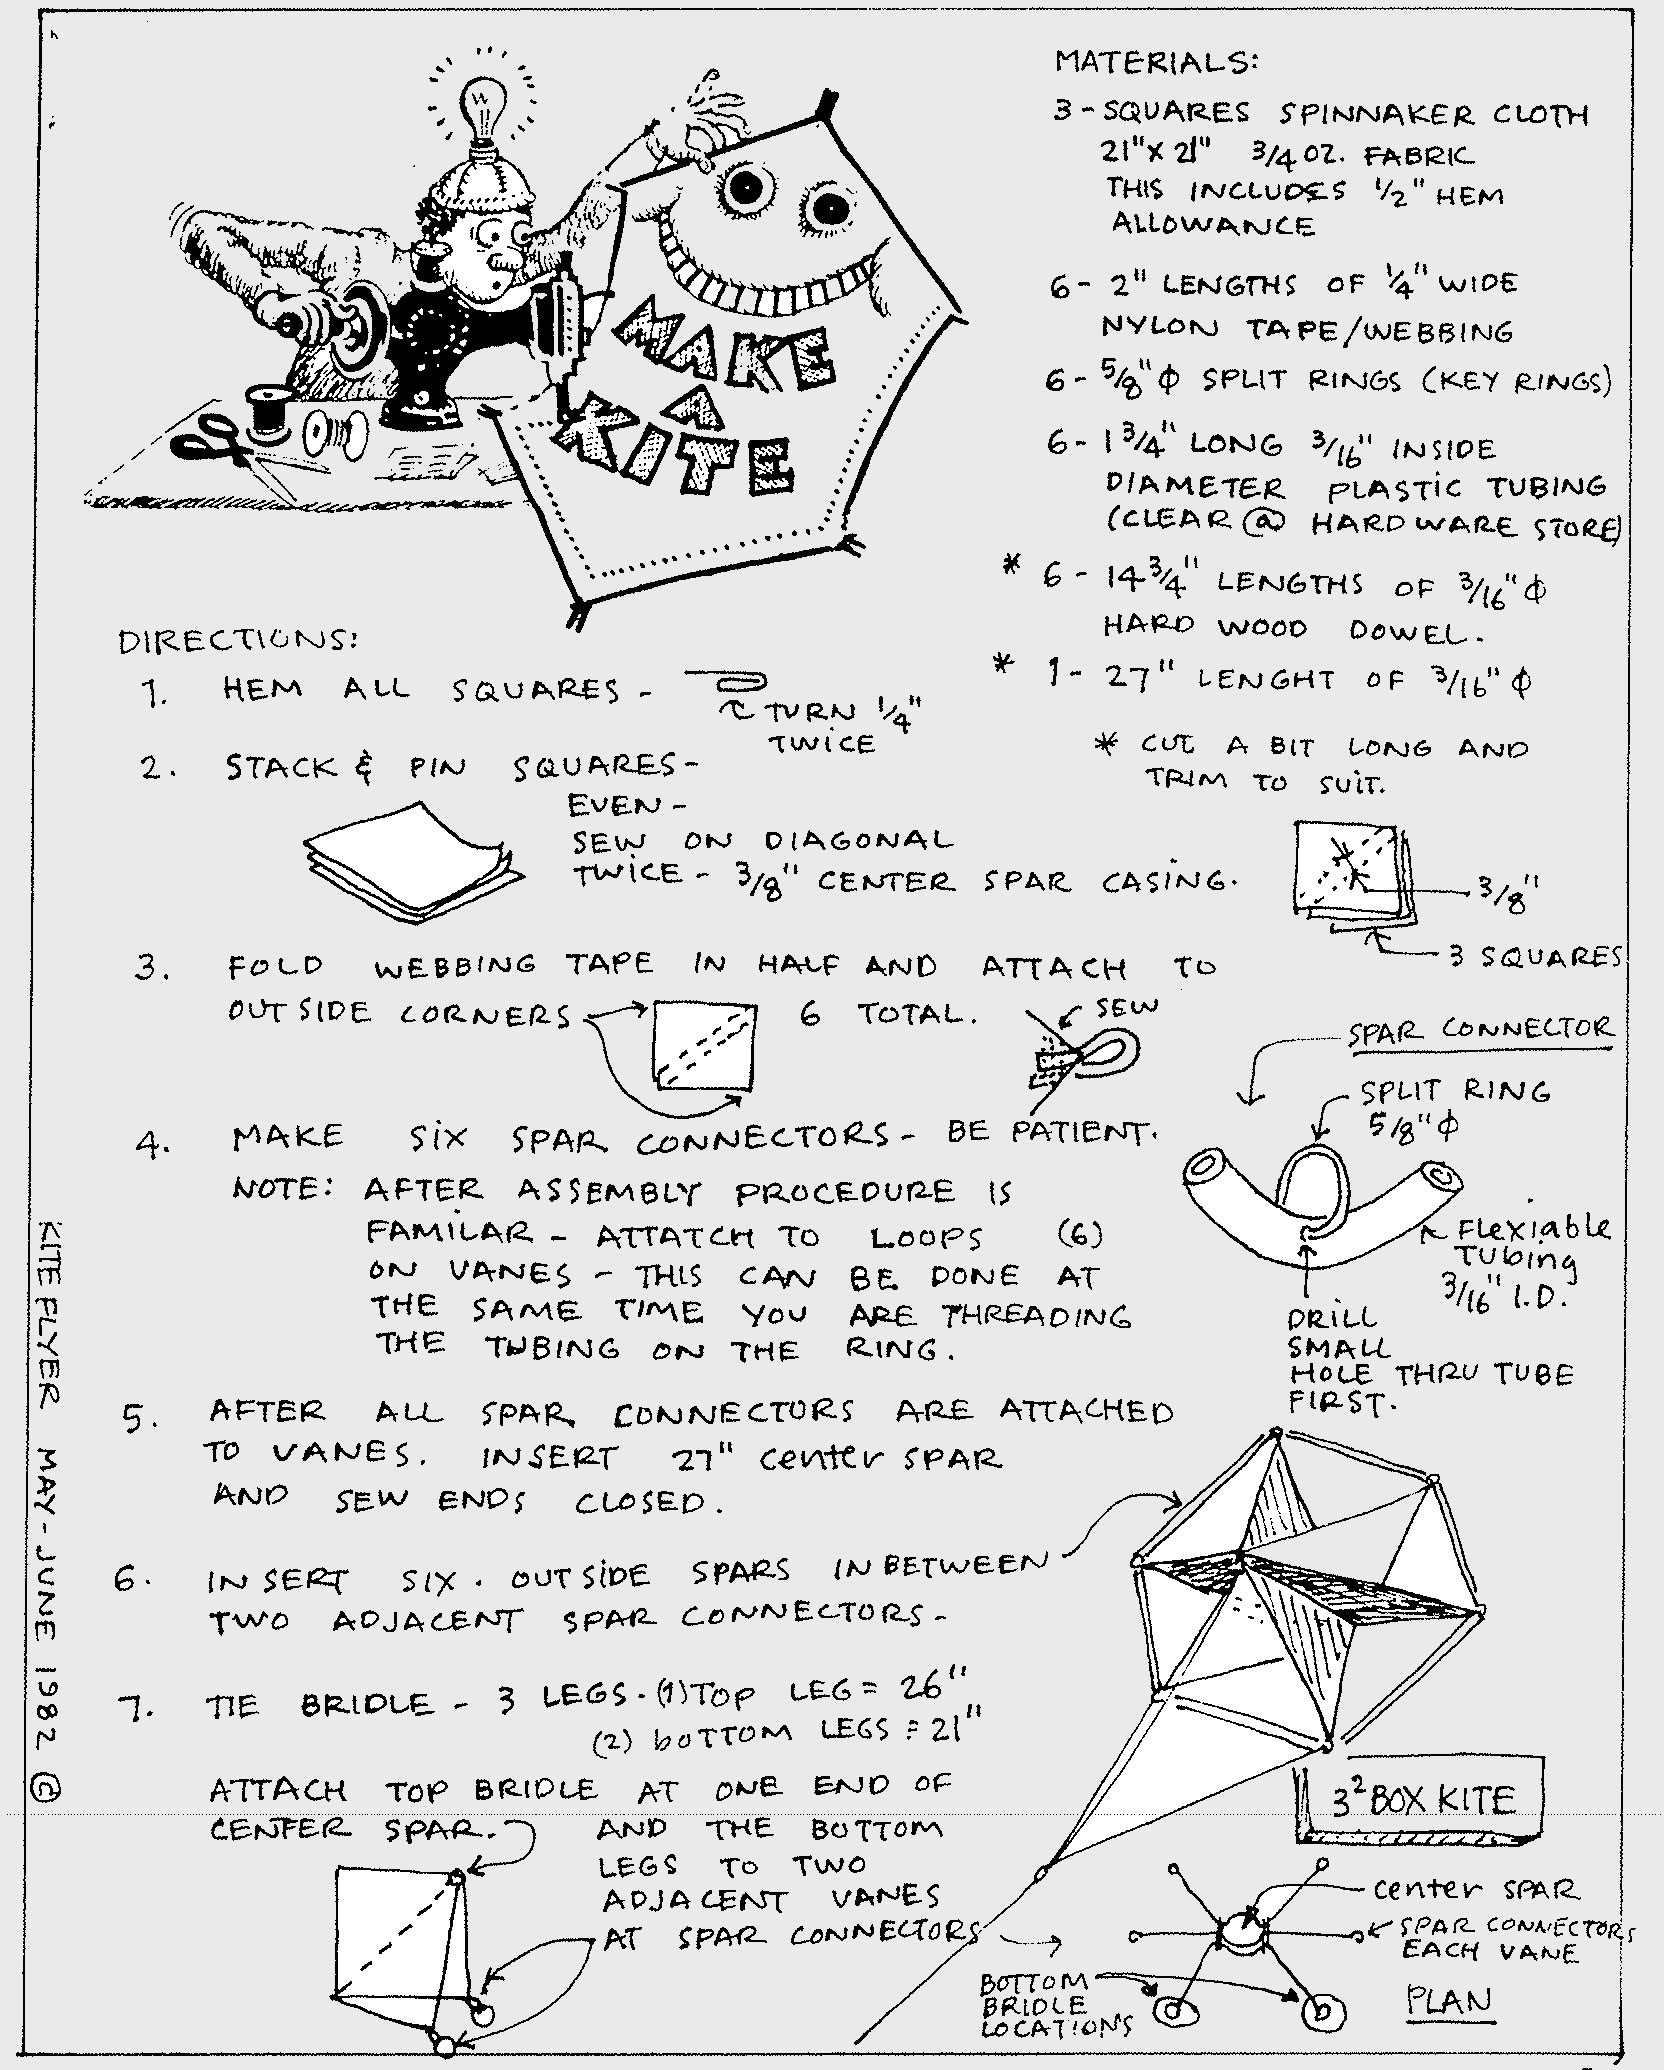 MAKE
A
KITE
MATERIALS:
3 - SQUARES SPINNAKER CLOTH
21" X 21" 3/4 OZ. FABRIC
THIS INCLUDES 1/2" HEM
ALLOWANCE
6 - 2" LENGTHS OF 1/4" WIDE
NYLON TAPE/WEBBING
6 - 5/8" ϕ SPLIT RINGS (KEY RINGS)
6 - 1 3/4" LONG 3/16" INSIDE
DIAMETER PLASTIC TUBING
(CLEAR @ HARDWARE STORE)
* 6 - 14 3/4" LENGTHS OF 3/16" ϕ
HARD WOOD DOWEL.
* 1 - 27" LENGHT OF 3/16" ϕ
* CUT A BIT LONG AND
TRIM TO SUIT.
DIRECTIONS:
1. HEM ALL SQUARES -
TURN 1/4"
TWICE
2. STACK & PIN SQUARES -
EVEN -
SEW ON DIAGONAL
TWICE - 3/8" CENTER SPAR CASING.
3/8"
3 SQUARES
3. FOLD WEBBING TAPE IN HALF AND ATTACH TO
OUTSIDE CORNERS 6 TOTAL.
SEW
4. MAKE SIX SPAR CONNECTORS - BE PATIENT.
NOTE: AFTER ASSEMBLY PROCEDURE IS
FAMILAR - ATTATCH TO LOOPS (6)
ON VANES - THIS CAN BE DONE AT
THE SAME TIME YOU ARE THREADING
THE TUBING ON THE RING.
SPAR CONNECTOR
SPLIT RING
5/8" ϕ
Flexiable
Tubing
3/16" I.D.
DRILL
SMALL
HOLE THRU TUBE
FIRST.
5. AFTER ALL SPAR CONNECTORS ARE ATTACHED
TO VANES. INSERT 27" center SPAR
AND SEW ENDS CLOSED.
6. INSERT SIX. OUTSIDE SPARS IN BETWEEN
TWO ADJACENT SPAR CONNECTORS -
7. TIE BRIDLE - 3 LEGS. (1) TOP LEG = 26"
(2) bOTTOM LEGS = 21"
ATTACH TOP BRIDLE AT ONE END OF
CENTER SPAR. AND THE BOTTOM
LEGS TO TWO
ADJACENT VANES
AT SPAR CONNECTORS
3² BOX KITE
center SPAR
SPAR CONNECTORS
EACH VANE
BOTTOM
BRIDLE
LOCATIONS
PLAN
KITEFLYER MAY - JUNE 1982 ©